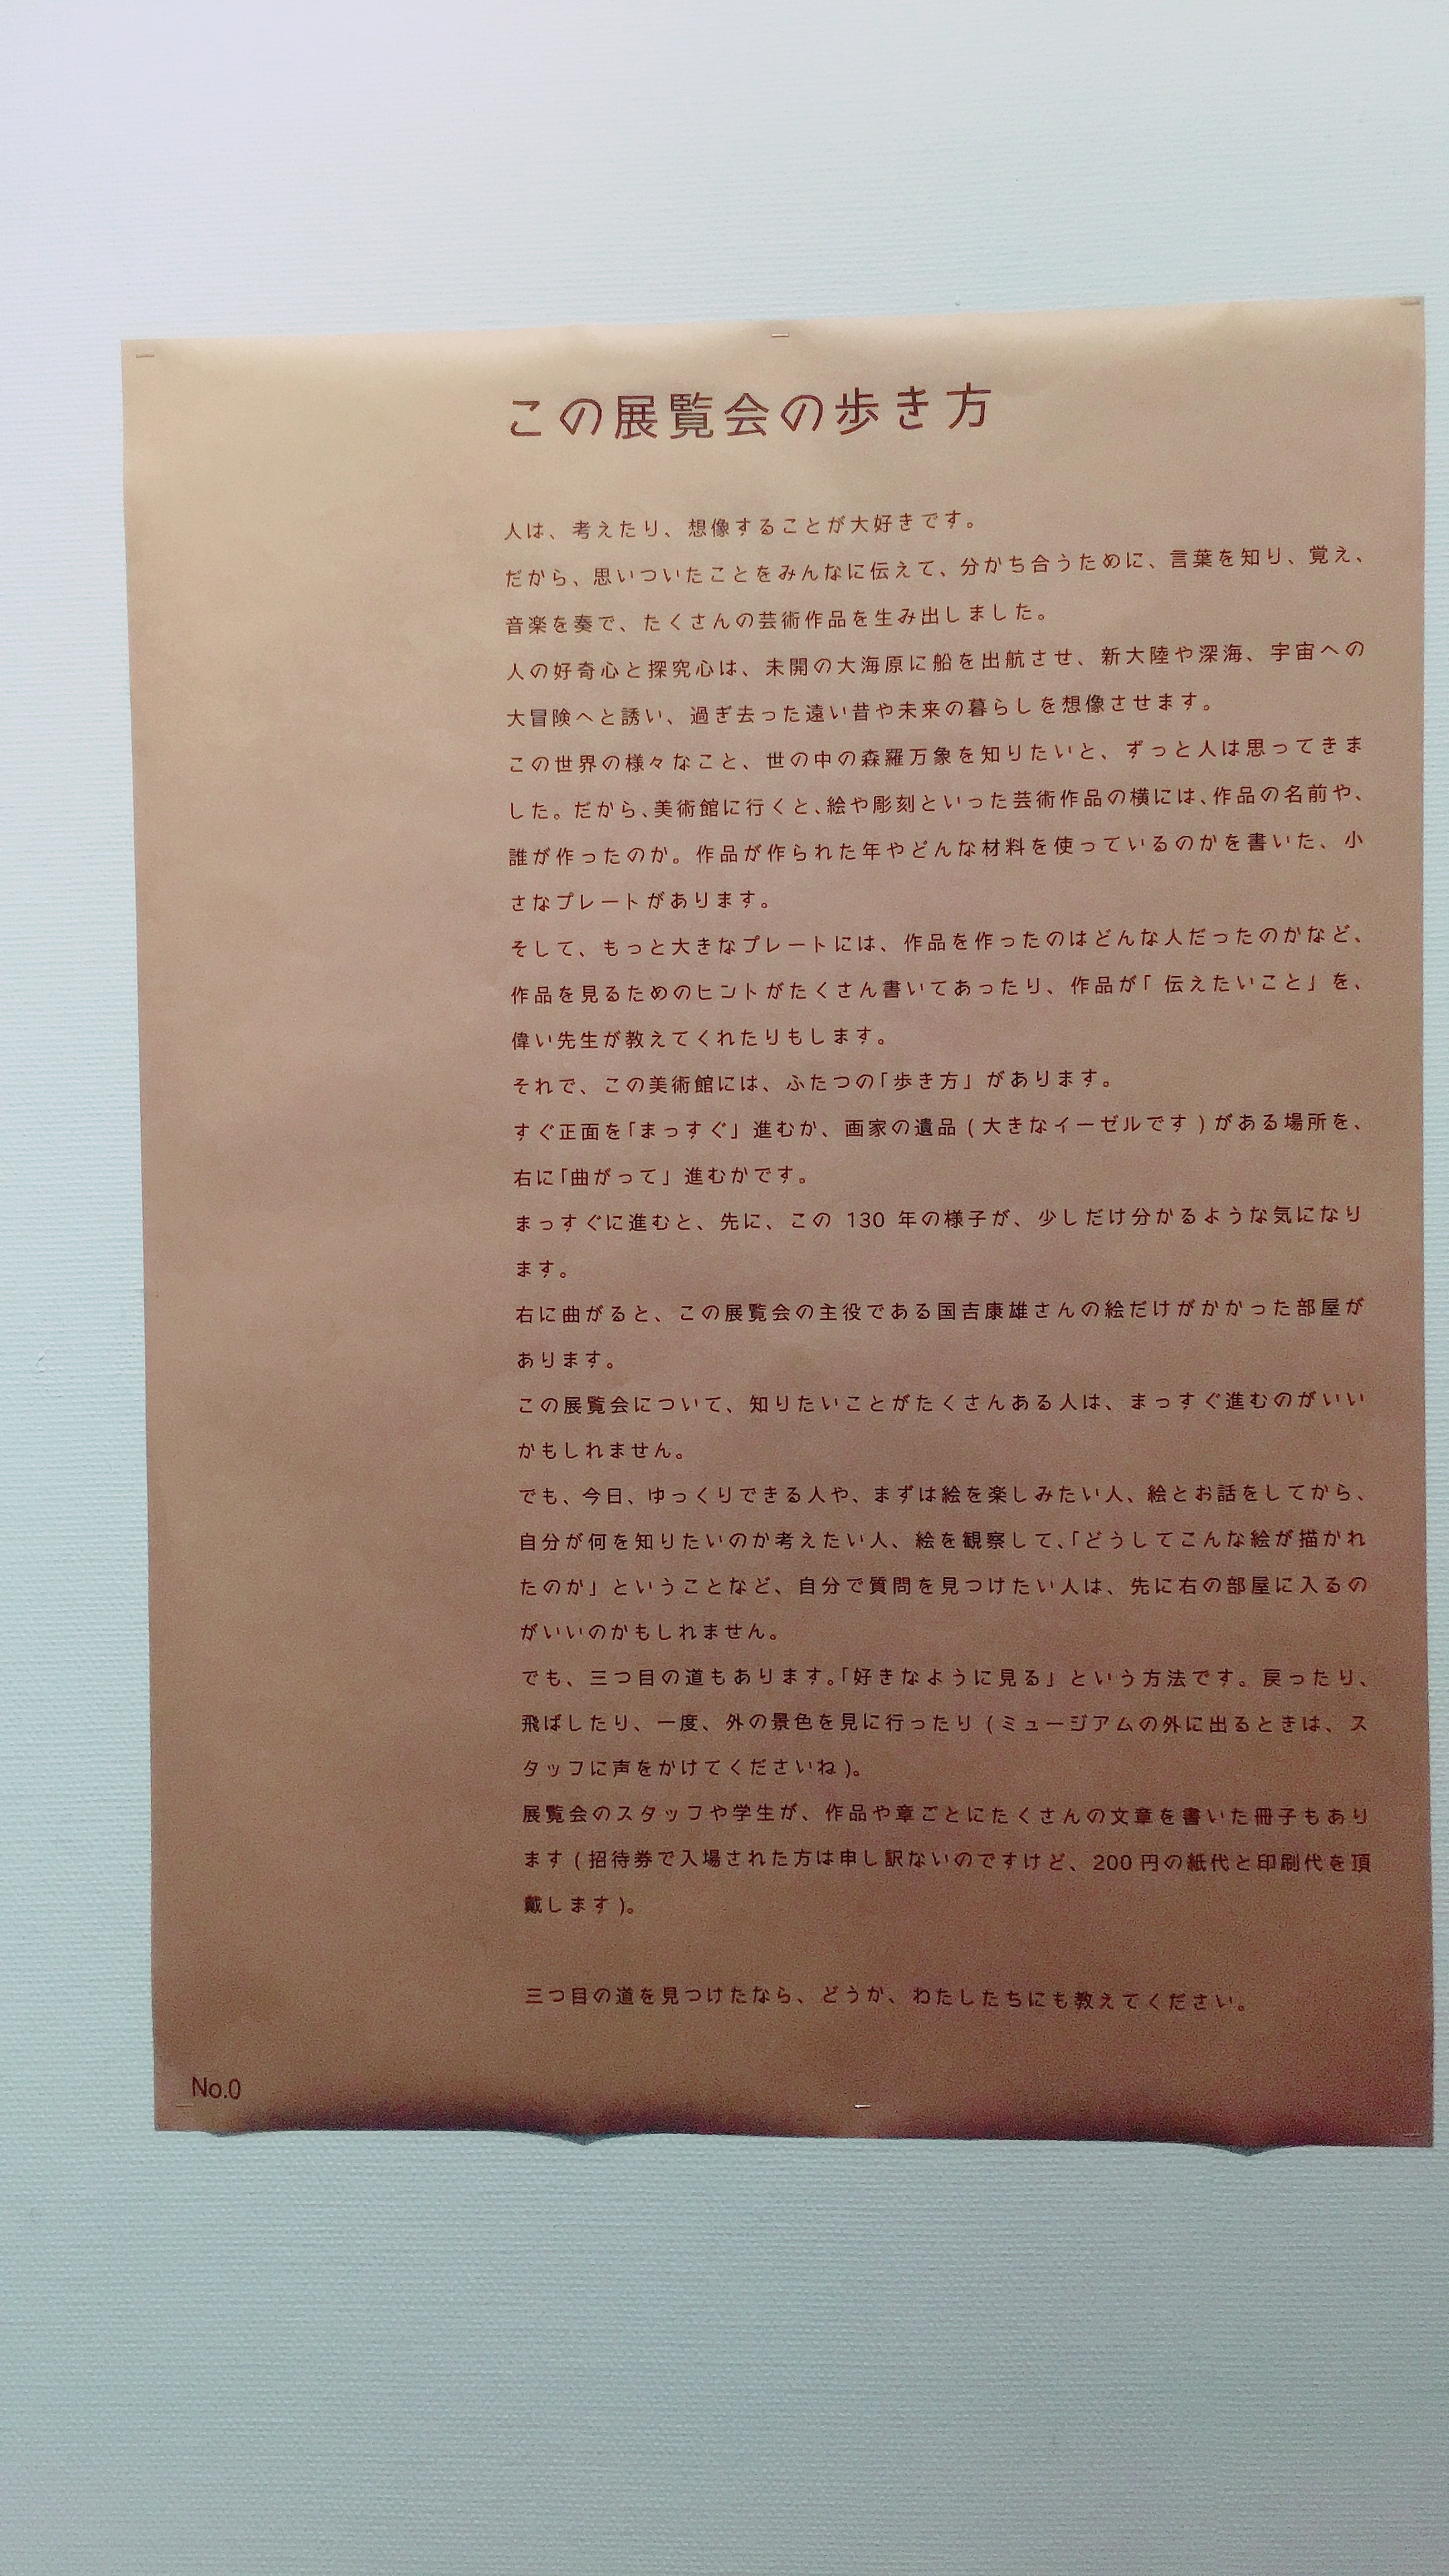 この展覧会の歩き方
人は、考えたり、想像することが大好きです。
だから、思いついたことをみんなに伝えて、分かち合うために、言葉を知り、覚え、
音楽を奏で、たくさんの芸術作品を生み出しました。
人の好奇心と探究心は、未開の大海原に船を出航させ、新大陸や深海、宇宙への
大冒険へと誘い、過ぎ去った遠い昔や未来の暮らしを想像させます。
この世界の様々なこと、世の中の森羅万象を知りたいと、ずっと人は思ってきま
した。だから、美術館に行くと、絵や彫刻といった芸術作品の横には、作品の名前や、
誰が作ったのか。作品が作られた年やどんな材料を使っているのかを書いた、小
さなプレートがあります。
そして、もっと大きなプレートには、作品を作ったのはどんな人だったのかなど、
作品を見るためのヒントがたくさん書いてあったり、作品が「伝えたいこと」を、
偉い先生が教えてくれたりもします。
それで、この美術館には、ふたつの「歩き方」があります。
すぐ正面を「まっすぐ」進むか、画家の遺品(大きなイーゼルです)がある場所を、
右に「曲がって」進むかです。
まっすぐに進むと、先に、この 130 年の様子が、少しだけ分かるような気になり
ます。
右に曲がると、この展覧会の主役である国吉康雄さんの絵だけがかかった部屋が
あります。
この展覧会について、知りたいことがたくさんある人は、まっすぐ進むのがいい
かもしれません。
でも、今日、ゆっくりできる人や、まずは絵を楽しみたい人、絵とお話をしてから、
自分が何を知りたいのか考えたい人、絵を観察して、「どうしてこんな絵が描かれ
たのか」ということなど、自分で質問を見つけたい人は、先に右の部屋に入るの
がいいのかもしれません。
でも、三つ目の道もあります。「好きなように見る」という方法です。戻ったり、
飛ばしたり、一度、外の景色を見に行ったり(ミュージアムの外に出るときは、ス
タッフに声をかけてくださいね)。
展覧会のスタッフや学生が、作品や章ごとにたくさんの文章を書いた冊子もあり
ます(招待券で入場された方は申し訳ないのですけど、200 円の紙代と印刷代を頂
戴します)。
三つ目の道を見つけたなら、どうか、わたしたちにも教えてください。
No.0